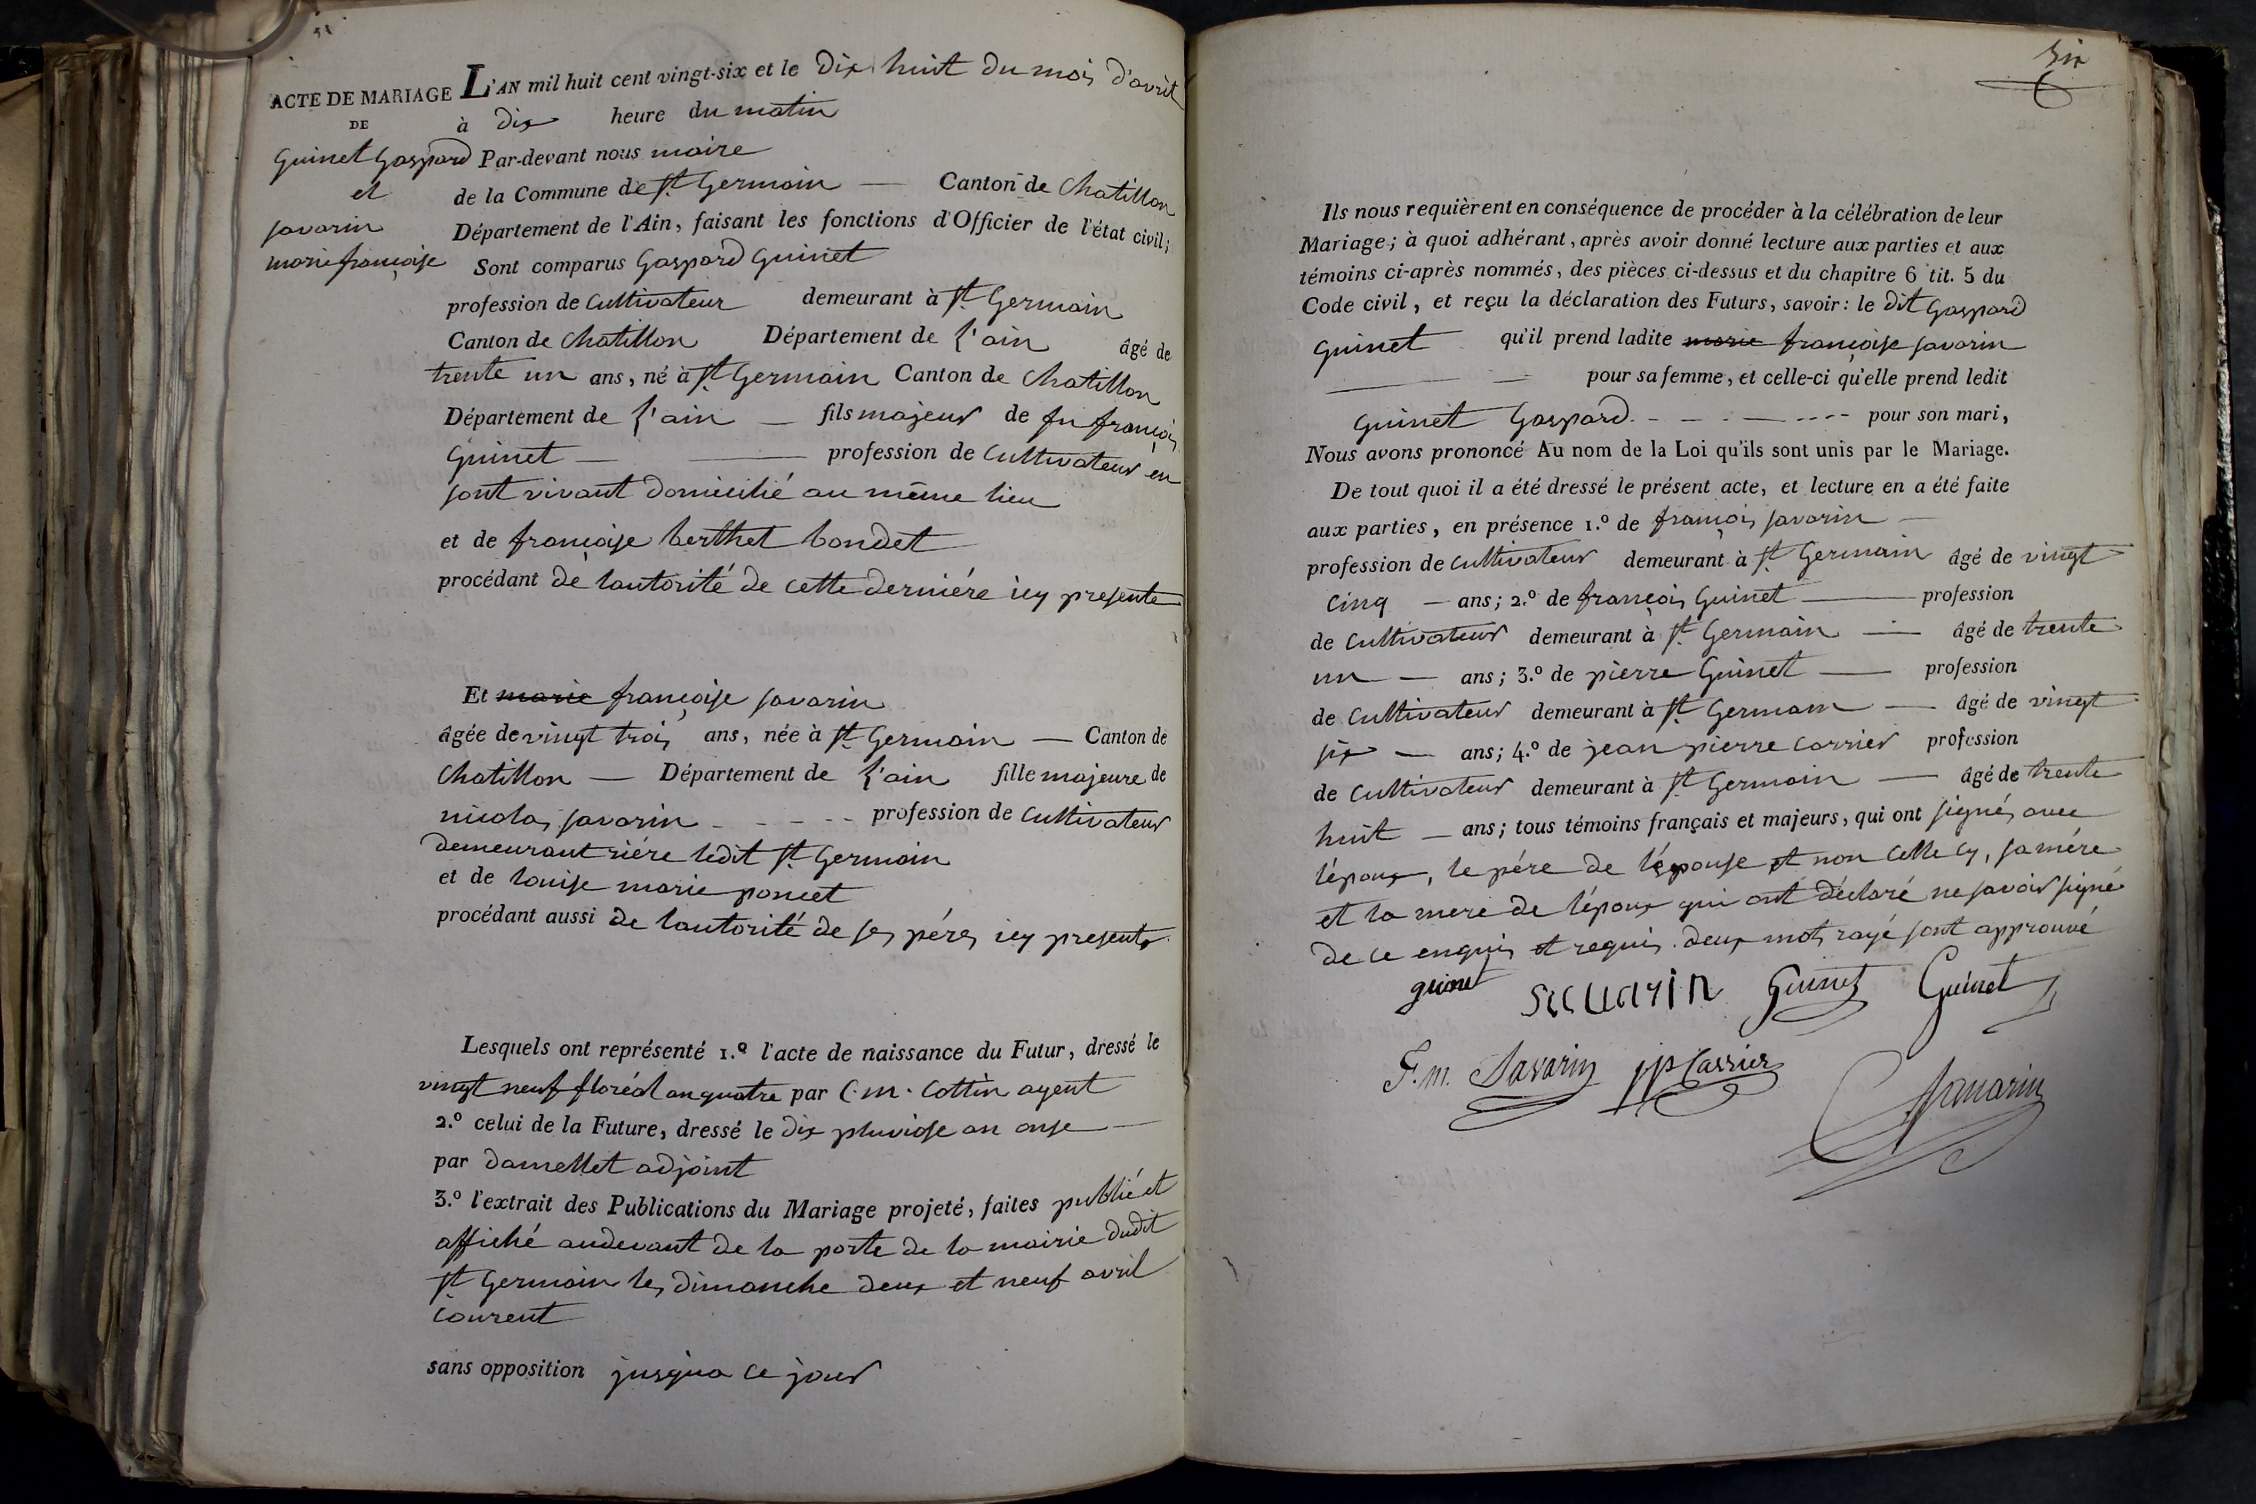 ACTE DE MARIAGE
DE
Guinet Gaspard
et
Savarin
marie françoise
L'AN mil huit cent vingt-six et le dix huit du mois d'avril
à dix heure du matin
Par-devant nous maire
de la Commune de St. Germain — Canton de Chatillon
Département de l'Ain, faisant les fonctions d'Officier de l'état civil;
Sont comparus Gaspard Guinet
profession de Cultivateur demeurant à St. Germain
Canton de Chatillon Département de l'ain âgé de
trente un ans, né à St. Germain Canton de Chatillon
Département de l'ain — fils majeur de fu françois
Guinet — profession de Cultivateur en
sont vivant domicilié au même lieu
et de françoise berthet bondet
procédant de lautorité de cette derniére icy presente
Et marie françoise savarin
âgée de vingt trois ans, née à St. Germain — Canton de
Chatillon — Département de l'ain fille majeure de
nicolas savarin - - - - profession de Cultivateur
demeurant riére ledit St. Germain
et de louise marie poncet
procédant aussi de lautorité de ses péres icy presents
Lesquels ont représenté 1.º l'acte de naissance du Futur, dressé le
vingt neuf floréal an quatre par C. m. Cottin agent
2.º celui de la Future, dressé le dix pluviose an onse —
par damellet adjoint
3.º l'extrait des Publications du Mariage projeté, faites publié et
affiché audevant de la porte de la mairie dudit
St. Germain les dimanche deux et neuf avril
courent
sans opposition jusqua ce jour
six
Ils nous requièrent en conséquence de procéder à la célébration de leur
Mariage; à quoi adhérant, après avoir donné lecture aux parties et aux
témoins ci-après nommés, des pièces ci-dessus et du chapitre 6 tit. 5 du
Code civil, et reçu la déclaration des Futurs, savoir: le dit Gaspard
Guinet qu'il prend ladite marie françoise savarin
— — pour sa femme, et celle-ci qu'elle prend ledit
Guinet Gaspard - - - — - - - pour son mari,
Nous avons prononcé Au nom de la Loi qu'ils sont unis par le Mariage.
De tout quoi il a été dressé le présent acte, et lecture en a été faite
aux parties, en présence 1.º de françois savarin —
profession de cultivateur demeurant à St. Germain âgé de vingt
cinq — ans; 2.º de françois Guinet — profession
de cultivateur demeurant à St. Germain — âgé de trente
un — ans; 3.º de pierre Guinet — profession
de Cultivateur demeurant à St. Germain — âgé de vingt
six — ans; 4.º de jean pierre carrier profession
de Cultivateur demeurant à St. Germain — âgé de trente
huit — ans; tous témoins français et majeurs, qui ont signés avec
lépoux, le pére de l'épouse et non celle cy, sa mére
et la mere de lépoux qui ont déclaré ne savoir signé
de ce enquis et requis. deux mots rayé sont approuvé
guinet Savarin Guinet Guinet
F. m. Savarin jp Carrier Savarin